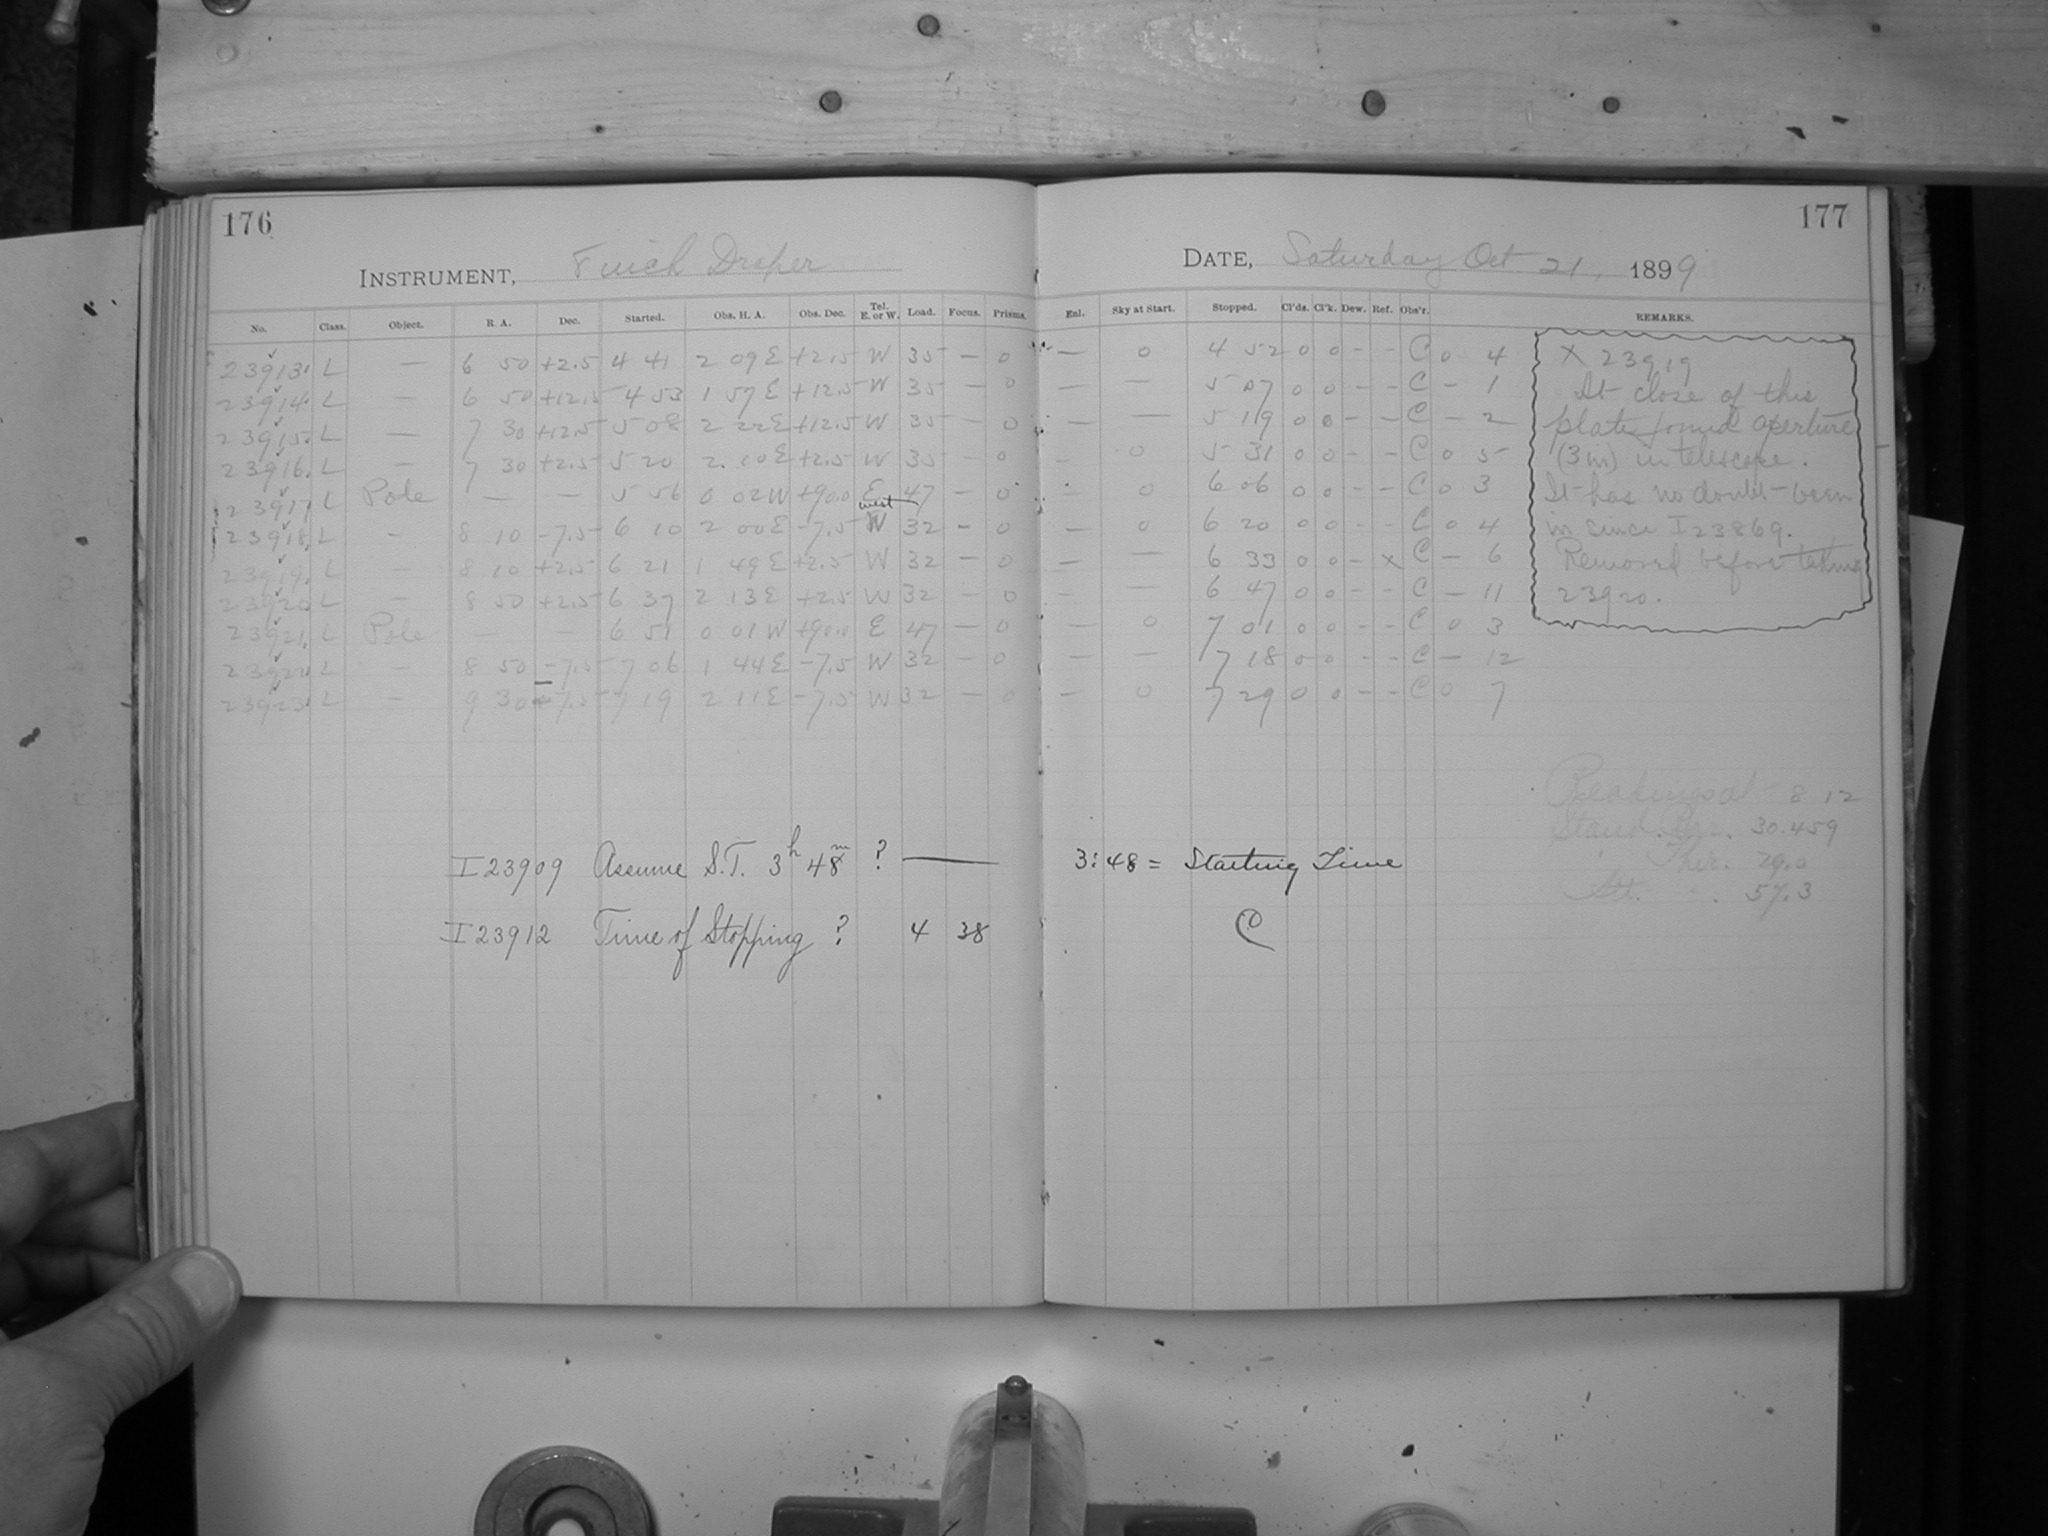 176
177
INSTRUMENT, 8 inch Draper
DATE, Saturday Oct 21, 1899
No. Class. Object. R. A. Dec. Started. Obs. H. A. Obs. Dec. Tel. E. or W. Load. Focus. Prisms. Enl. Sky at Start. Stopped. Cl'ds. Cl'k. Dew. Ref. Obs'r. REMARKS.
23913 L — 6 50 +2.5 4 41 2 09 E +2.5 W 35 — 0 — 0 4 52 0 0 - - C 0 4
23914 L — 6 50 +12.5 4 53 1 57 E +12.5 W 35 — 0 — — 5 07 0 0 - - C - 1
23915 L — 7 30 +12.5 5 08 2 22 E +12.5 W 35 — 0 — — 5 19 0 0 - - C - 2
23916 L — 7 30 +2.5 5 20 2 10 E +2.5 W 35 — 0 — 0 5 31 0 0 - - C 0 5
23917 L Pole — — 5 56 0 02 W +90.0 E 47 — 0 — 0 6 06 0 0 - - C 0 3
west
23918 L — 8 10 -7.5 6 10 2 00 E -7.5 W 32 — 0 — 0 6 20 0 0 - - C 0 4
23919 L — 8 10 +2.5 6 21 1 49 E +2.5 W 32 — 0 — — 6 33 0 0 - x C - 6
23920 L — 8 50 +2.5 6 37 2 13 E +2.5 W 32 — 0 — — 6 47 0 0 - - C - 11
23921 L Pole — — 6 51 0 01 W +90.0 E 47 — 0 — 0 7 01 0 0 - - C 0 3
23922 L — 8 50 -7.5 7 06 1 44 E -7.5 W 32 — 0 — — 7 18 0 0 - - C - 12
23923 L — 9 30 -7.5 7 19 2 11 E -7.5 W 32 — 0 — 0 7 29 0 0 - - C 0 7
X 23919
At close of this
plate found aperture
(3 in) in telescope.
It has no doubt been
in since I 23869.
Removed before taking
23920.
Readings at 8 12
Stand. Bar. 30.459
Ther. 79.0
Att. 57.3
I 23909 Assume S.T. 3h 48m ? — 3:48 = Starting Time
I 23912 Time of Stopping ? 4 38 C